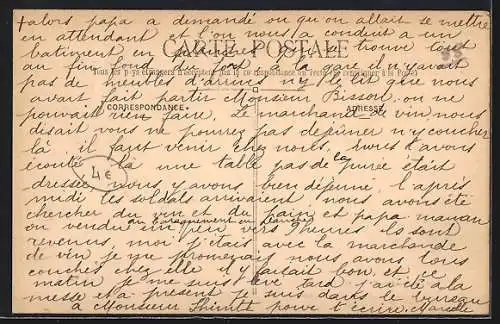 +alors papa a demandé ou qu'on allait se mettre
en attendant et l'on nous a conduit a un
batiment en planches se trouve tout
CARTE POSTALE
au fin fond du fort, à la gare il n'y avait
pas de meubles d'arrivés n'y le lit que nous
avant fait partir Monsieur Bisson, on ne
CORRESPONDANCE
ADRESSE
pouvait rien faire. Le marchand de vin nous
disait vous ne pourrez pas dejeuner n'y coucher
là, il faut venir chez nous. nous l'avons
écouté là une table pas de la purée était
dressée nous y avons bien déjeuné. l'après
midi les soldats arrivaient nous avons été
chercher du vin et du pain et papa maman
au baraquement en planche
on vendu un peu vers heures ils sont
revenus, moi j'étais avec la marchande
de vin, je me promenais nous avons tous
couchés chez elle il y faisait bon, et ce
matin je me suis levé tard j'ai été à la
messe et a présent je suis dans le bureau
a Monsieur pour t'écrire. Marcelle
4€